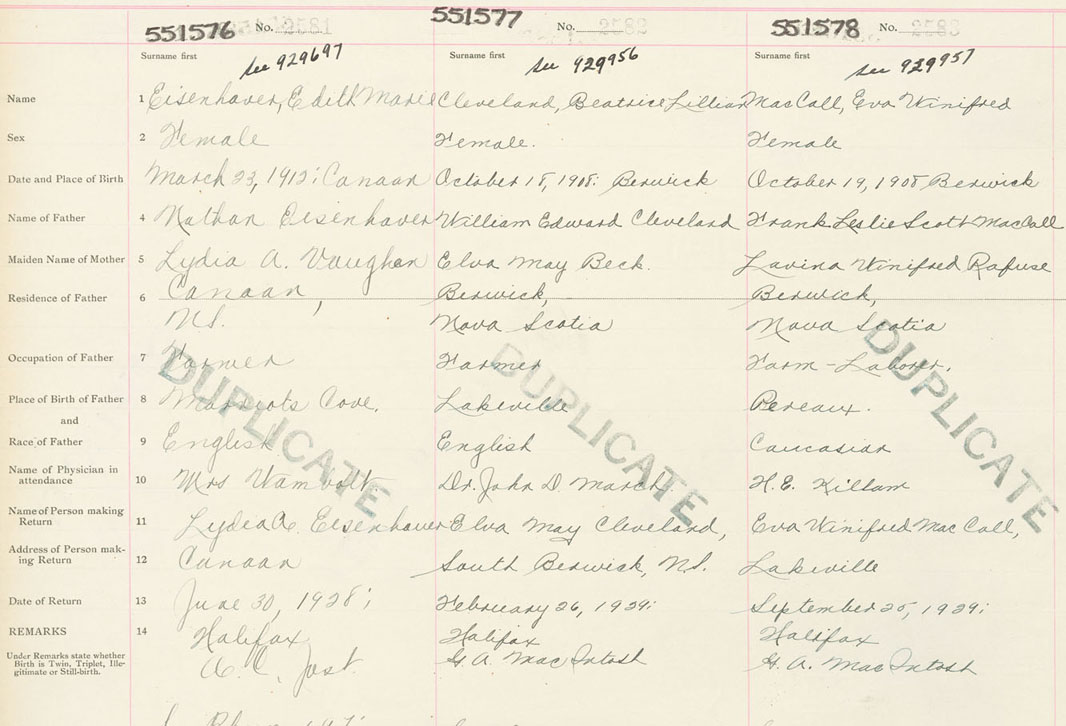 551576 No. 2581 551577 No. 2582 551578 No. 2583
Surname first see 929697 Surname first see 929956 Surname first see 929957
Name 1 Eisenhaver, Edith Marie Cleveland, Beatrice Lillian MacCall, Eva Winifred
Sex 2 Female Female. Female
Date and Place of Birth 3 March 23, 1912; Canaan October 18, 1908: Berwick October 19, 1908, Berwick
Name of Father 4 Nathan Eisenhaver William Edward Cleveland Frank Leslie Scott MacCall
Maiden Name of Mother 5 Lydia A. Vaughan Elva May Beck. Lavina Winifred Rafuse
Residence of Father 6 Canaan, Berwick, Berwick,
N.S. Nova Scotia Nova Scotia
Occupation of Father 7 Farmer Farmer Farm-Laborer.
Place of Birth of Father 8 Marriots Cove. Lakeville Pereaux.
and
Race of Father 9 English English Caucasian
Name of Physician in
attendance 10 Mrs Wamboldt Dr. John D. March. H.E. Killam
Name of Person making
Return 11 Lydia A. Eisenhaver Elva May Cleveland, Eva Winifred MacCall,
Address of Person mak-
ing Return 12 Canaan South Berwick, N.S. Lakeville
Date of Return 13 June 30, 1928; February 26, 1929: September 25, 1929;
REMARKS 14 Halifax Halifax Halifax
Under Remarks state whether
Birth is Twin, Triplet, Ille-
gitimate or Still-birth.
A C. Jost. G. A. MacIntosh G. A. MacIntosh
DUPLICATE DUPLICATE DUPLICATE